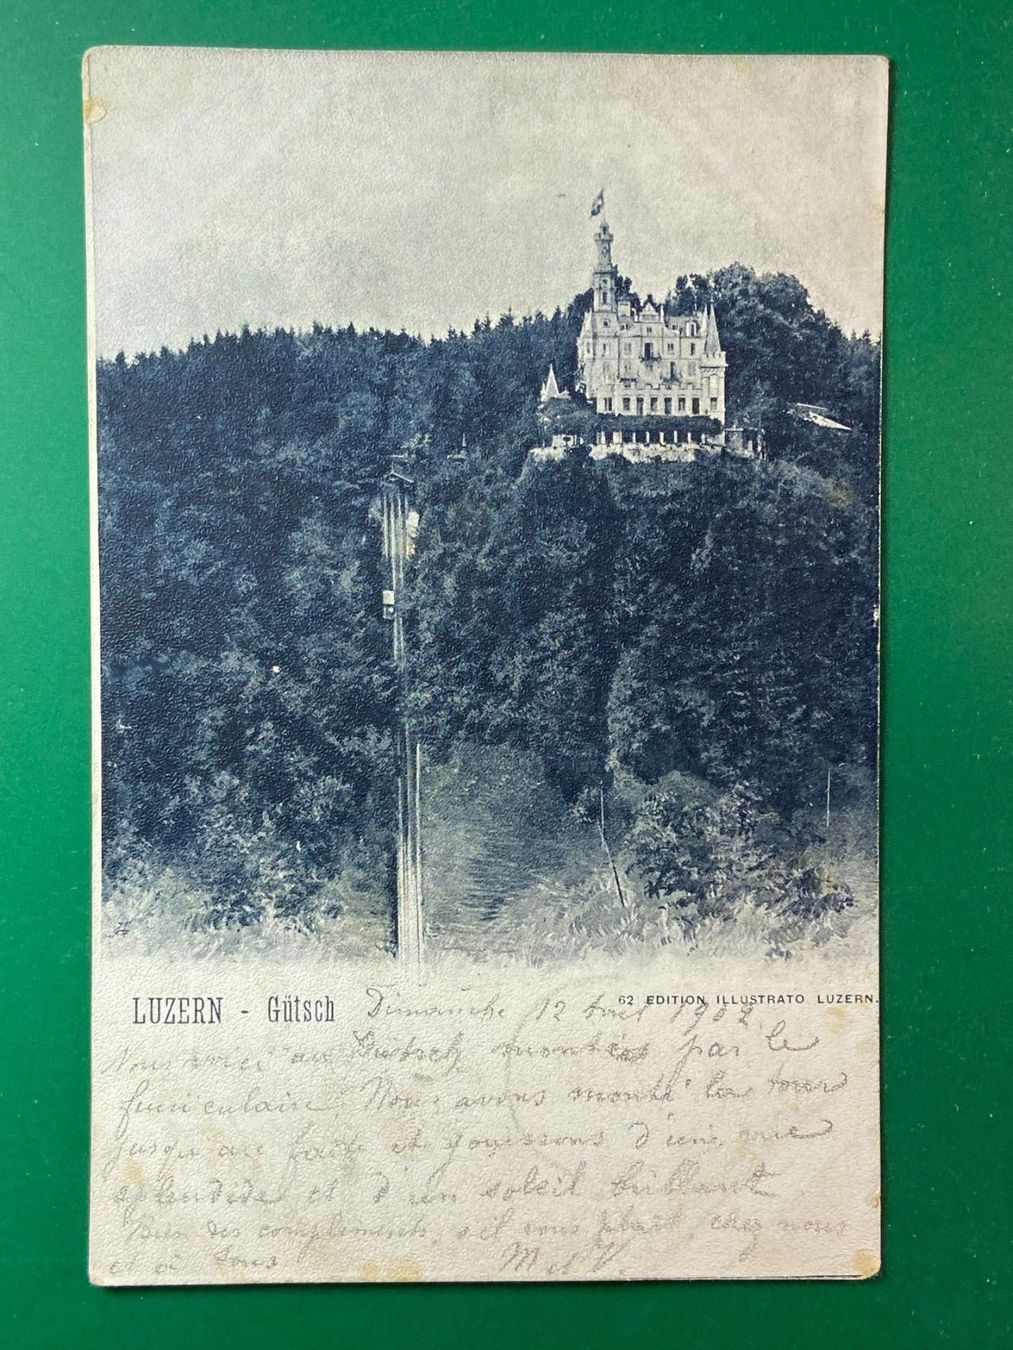 LUZERN - Gütsch
62 EDITION ILLUSTRATO LUZERN.
Dimanche 12 1902
Nous au Gütsch montés par le
funiculaire Nous avons monté la tour
jusqu au haut et jouissons d'une vue
splendide et d'un soleil brillant
Bien des compliments, s'il vous plait, chez nous
et à tous M et V.